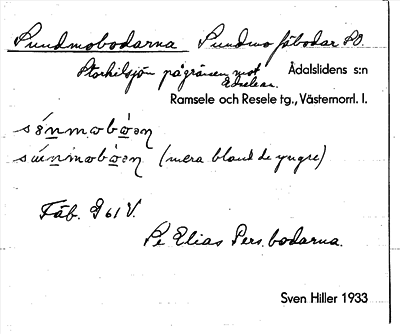 Sundmobodarna Sundmo fäbodar SO.
Storkilsjön på gränsen mot Ådalslidens s:n
Edselen.
Ramsele och Resele tg., Västernorrl. l.
(mera bland de yngre)
Fäb. G 61 V.
Pe Elias Pers bodarna.
Sven Hiller 1933